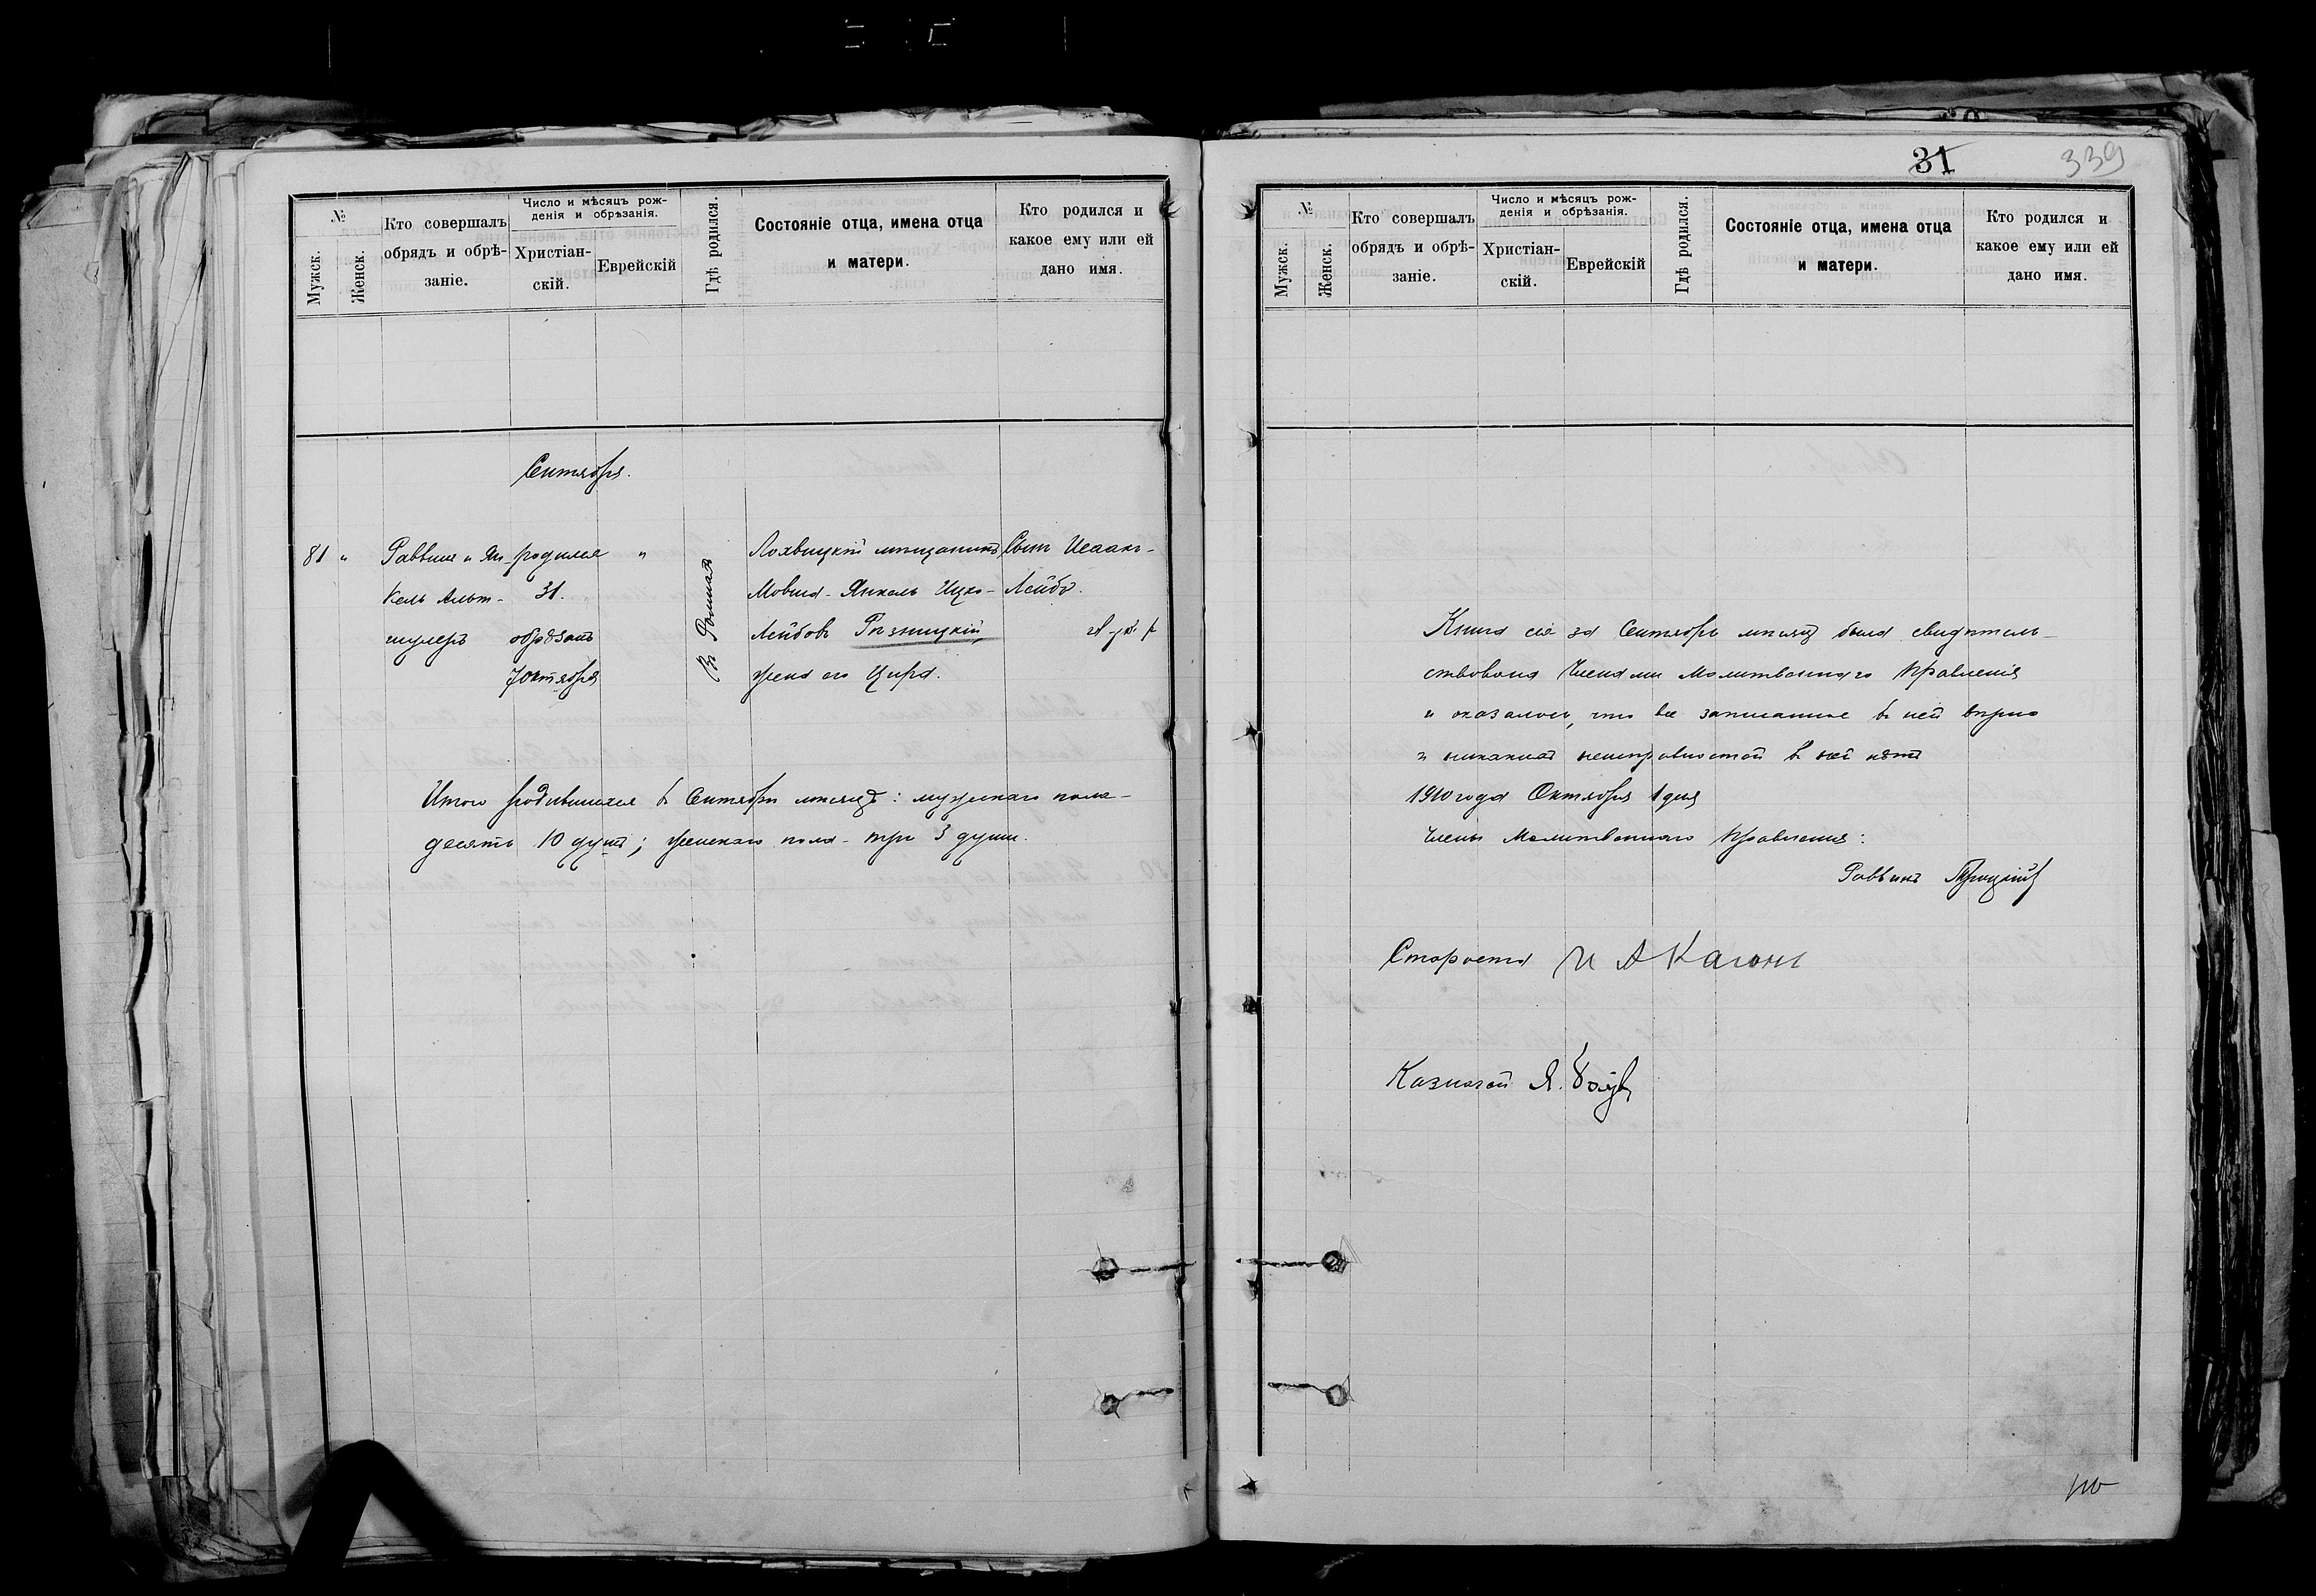 №
Мужск.
Женск.
Кто совершалъ
обрядъ и обрѣ-
заніе.
Число и мѣсяцъ рож-
денія и обрѣзанія.
Христіан-
скій.
Еврейскій
Гдѣ родился.
Состояніе отца, имена отца
и матери.
Кто родился и
какое ему или ей
дано имя.
Сентября.
81 "
Раввинъ и Ян-
кель Альт-
шулеръ
родился
31.
обрѣзанъ
7 октября
"
Въ Ромнахъ
Лохвицкій мѣщанинъ
Мовша-Янкель Ицко-
Лейбовъ Рѣзницкій,
жена его Цира.
Сынъ Исаакъ-
Лейбъ.
Итого родившихся въ Сентябрѣ мѣсяцѣ: мужскаго пола-
десять 10 душъ; женскаго пола - три 3 души.
31
339
№
Мужск.
Женск.
Кто совершалъ
обрядъ и обрѣ-
заніе.
Число и мѣсяцъ рож-
денія и обрѣзанія.
Христіан-
скій.
Еврейскій
Гдѣ родился.
Состояніе отца, имена отца
и матери.
Кто родился и
какое ему или ей
дано имя.
Книга сія за Сентябрь мѣсяцъ была свидѣтель-
ствована Членами Молитвеннаго Правленія
и оказалось, что все записанное въ ней вѣрно
и никакихъ неисправностей въ ней нѣтъ
1910 года Октября 1 дня
Члены Молитвеннаго Правленія:
Раввинъ
Староста И А Каганъ
Казначей Я.